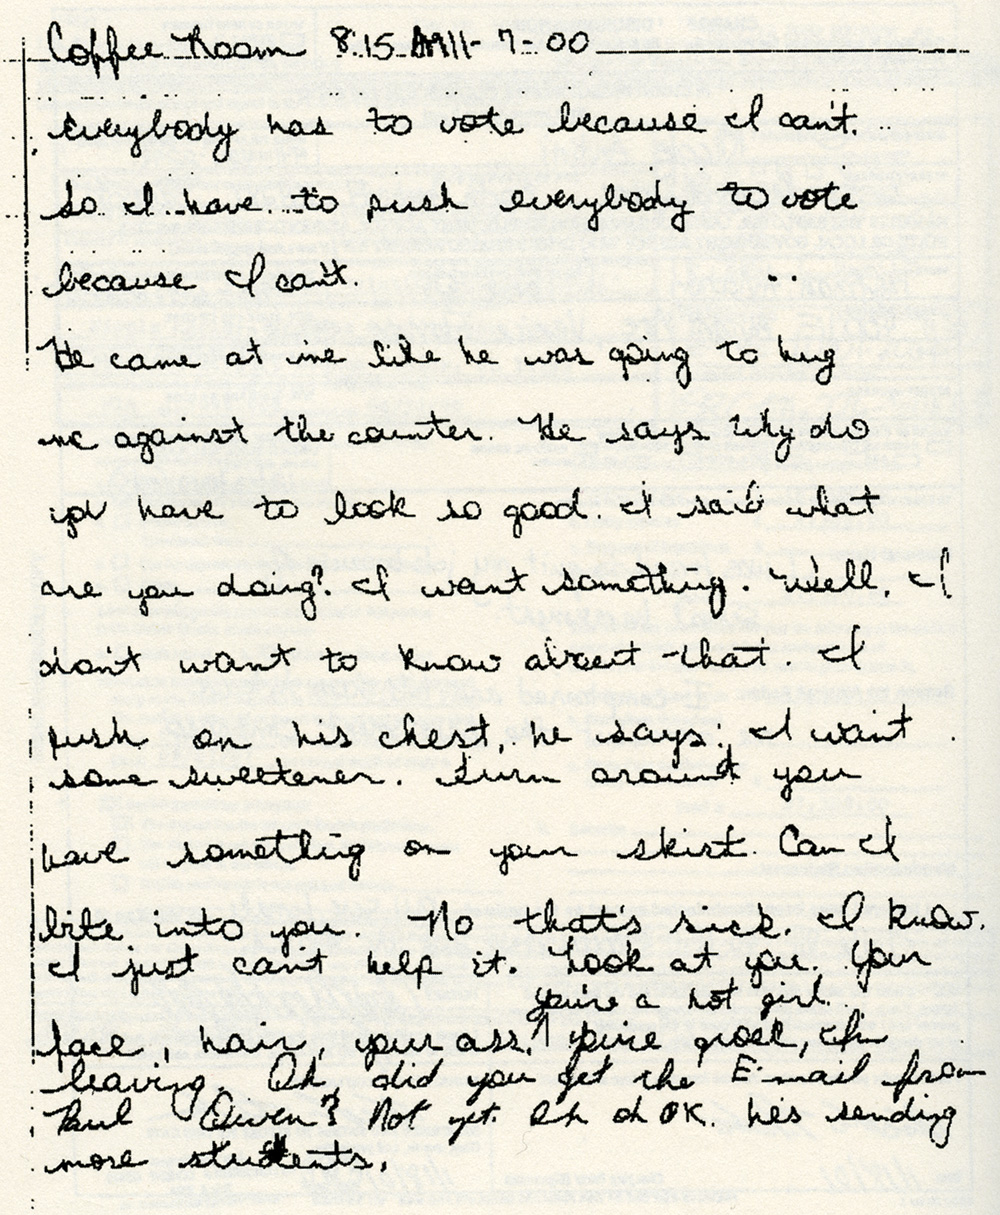 Coffee Room 8:15 AM 11-7-00
everybody has to vote because I can't.
So I have to push everybody to vote
because I can't.
He came at me like he was going to hug
me against the counter. He says why do
you have to look so good. I said what
are you doing? I want something. Well, I
don't want to know about that. I
push on his chest, he says, I want
some sweetener. Turn around you
have something on your skirt. Can I
bite into you. No that's sick. I know.
I just can't help it. Look at you. Your
you're a hot girl.
face, hair, your ass, you're gross, I'm
leaving. Oh did you get the E-mail from
Paul Given? Not yet. Oh oh OK. he's sending
more students.